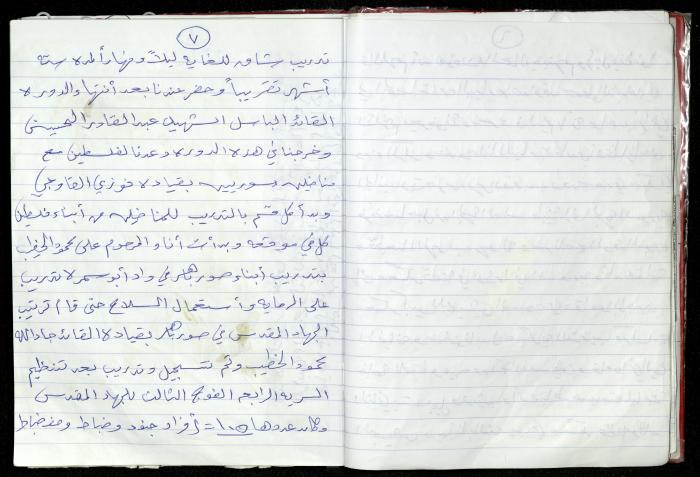 ٧
تدريب شاق للغاية ليلاً ونهاراً لمدة ستة
أشهر تقريباً وحضر عندنا بعد أنتهاء الدورة
القائد الباسل الشهيد عبد القادر الحسيني
وخرجنا في هذه الدورة وعدنا لفلسطين مع
مناضلين سوريين بقيادة فوزي القاوجي
وبدأ كل قسم بالتدريب للمناضلين من أبناء فلسطين
كل في موقعه وبدأت أنا والمرحوم علي محمود الخطيب
بتدريب أبناء صور باهر في واد أبو سمرة تدريب
على الرماية وأستعمال السلاح حتى قام ترتيب
الجهاد المقدس في صور باهر بقيادة القائد جاد الله
محمود الخطيب وتم تسجيل وتدريب بعد تنظيم
السرية الرابعة الفوج الثالث للجهاد المقدس
وكان عددها ١٠٥ = أفراد جنود وضباط وصف ضباط